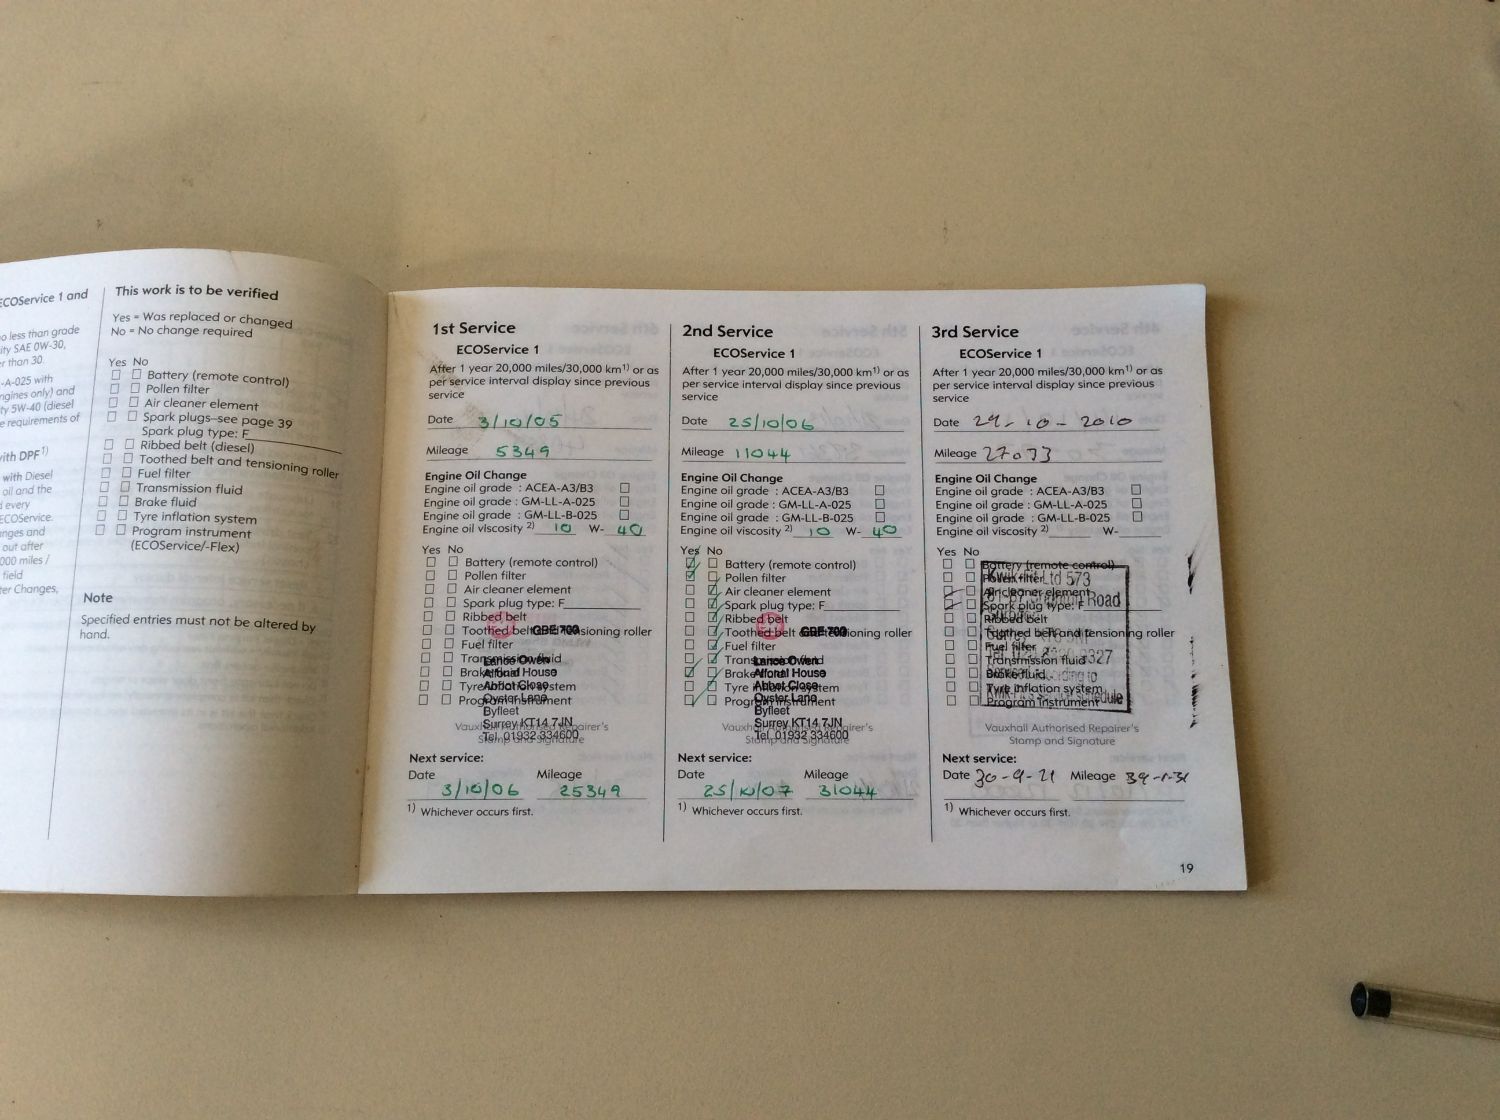 ECOService 1 and
o less than grade
ity SAE 0W-30,
er than 30.
-A-025 with
ngines only) and
ty 5W-40 (diesel
e requirements of
with DPF 1)
with Diesel
oil and the
every
ECOService.
nges and
out after
000 miles /
field
ter Changes,
This work is to be verified
Yes = Was replaced or changed
No = No change required
Yes No
Battery (remote control)
Pollen filter
Air cleaner element
Spark plugs–see page 39
Spark plug type: F
Ribbed belt (diesel)
Toothed belt and tensioning roller
Fuel filter
Transmission fluid
Brake fluid
Tyre inflation system
Program instrument
(ECOService/-Flex)
Note
Specified entries must not be altered by
hand.
1st Service
ECOService 1
After 1 year 20,000 miles/30,000 km1) or as
per service interval display since previous
service
Date 3/10/05
Mileage 5349
Engine Oil Change
Engine oil grade : ACEA-A3/B3
Engine oil grade : GM-LL-A-025
Engine oil grade : GM-LL-B-025
Engine oil viscosity 2) 10 W- 40
Yes No
Battery (remote control)
Pollen filter
Air cleaner element
Spark plug type: F
Ribbed belt
Toothed belt and tensioning roller
GBE 700
Fuel filter
Transmission fluid
Lance Owen
Brake fluid
Alfonal House
Tyre inflation system
Abbot Close
Program instrument
Oyster Lane
Byfleet
Surrey KT14 7JN
Tel. 01932 334600
Vauxhall Authorised Repairer's
Stamp and Signature
Next service:
Date 3/10/06 Mileage 25349
1) Whichever occurs first.
2nd Service
ECOService 1
After 1 year 20,000 miles/30,000 km1) or as
per service interval display since previous
service
Date 25/10/06
Mileage 11044
Engine Oil Change
Engine oil grade : ACEA-A3/B3
Engine oil grade : GM-LL-A-025
Engine oil grade : GM-LL-B-025
Engine oil viscosity 2) 10 W- 40
Yes No
Battery (remote control)
Pollen filter
Air cleaner element
Spark plug type: F
Ribbed belt
Toothed belt and tensioning roller
GBE 700
Fuel filter
Transmission fluid
Lance Owen
Brake fluid
Alfonal House
Tyre inflation system
Abbot Close
Program instrument
Oyster Lane
Byfleet
Surrey KT14 7JN
Tel. 01932 334600
Vauxhall Authorised Repairer's
Stamp and Signature
Next service:
Date 25/10/07 Mileage 31044
1) Whichever occurs first.
3rd Service
ECOService 1
After 1 year 20,000 miles/30,000 km1) or as
per service interval display since previous
service
Date 29-10-2010
Mileage
Engine Oil Change
Engine oil grade : ACEA-A3/B3
Engine oil grade : GM-LL-A-025
Engine oil grade : GM-LL-B-025
Engine oil viscosity 2) W-
Yes No
Battery (remote control)
Pollen filter
Kwik-Fit Ltd 573
Air cleaner element
Road
Spark plug type: F
Ribbed belt
Toothed belt and tensioning roller
Fuel filter
Transmission fluid
Brake fluid
Tyre inflation system
Program instrument
Kwik-Fit's service schedule
Vauxhall Authorised Repairer's
Stamp and Signature
Next service:
Date 30-9-21 Mileage
1) Whichever occurs first.
19